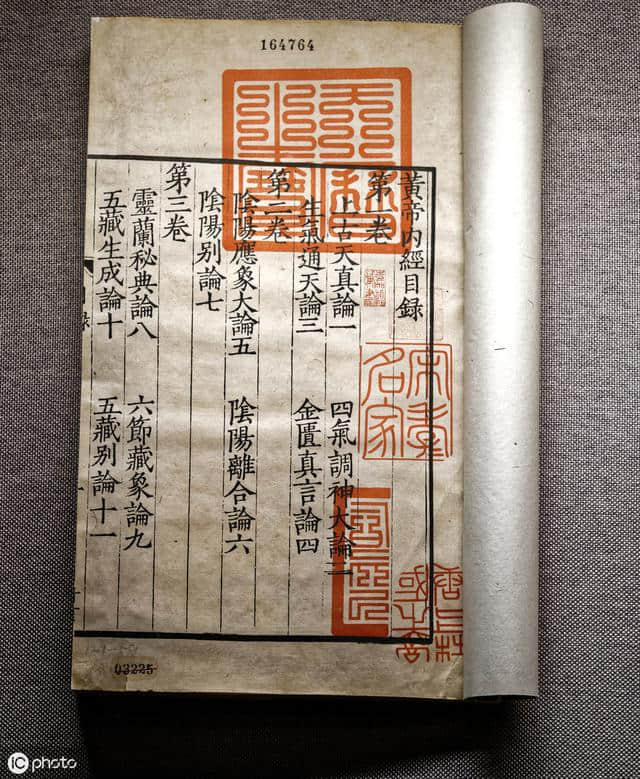 164764
黃帝內經目錄
第一卷
上古天真論一 四氣調神大論二
生氣通天論三 金匱真言論四
第二卷
陰陽應象大論五 陰陽離合論六
陰陽别論七
第三卷
靈蘭秘典論八 六節藏象論九
五藏生成論十 五藏别論十一
錄
03225
iCphoto